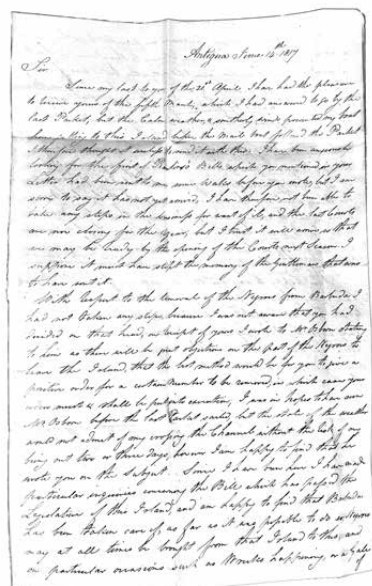 Antigua June 14th 1817
Sir
Since my last to you of the 21st April I have had the pleasure
to receive yours of the fifth March, which I had answered to go by the
last Packet, but the Calm weather & southerly winds prevented my boat
from getting to this Island before the Mail Boat and the Packet
I therefore thought it useless to send it with this. I have been anxiously
looking for the Bill which you mentioned in your
Letter had been sent to me some weeks before you wrote, but I am
sorry to say it has not yet arrived, I have therefore not been able to
take any steps in the business for want of it, and the last Courts
are now closing for the year, but I trust it will arrive so that
we may be ready by the opening of the Courts next Season. I
suppose it must have slipt the memory of the Gentleman that was
to have sent it.
With respect to the removal of the Negroes from Barbuda I
had not taken any steps because I was not aware that you had
decided on that head, on receipt of yours I wrote to Mr Osborn stating
to him as there will be great objections on the part of the Negroes to
leave the Island, that the best method would be for you to give a
positive order for a certain Number to be removed, in which case your
orders must & shall be put into execution, I was in hopes to have seen
Mr Osborn before the last Packet sailed, but the state of the weather
would not admit of my crossing the Channel without the risk of my
being out two or three days, however I am happy to find that he
wrote you on the subject. Since I have been here I have made
particular enquiries concerning the Bill which has passed the
Legislature of this Island, and am happy to find that Barbuda
has been taken care of, as far as it was possible to do so, Negroes
may at all times be brought from that Island to this, and
on particular occasions such as Wrecks happening, or a Gale of